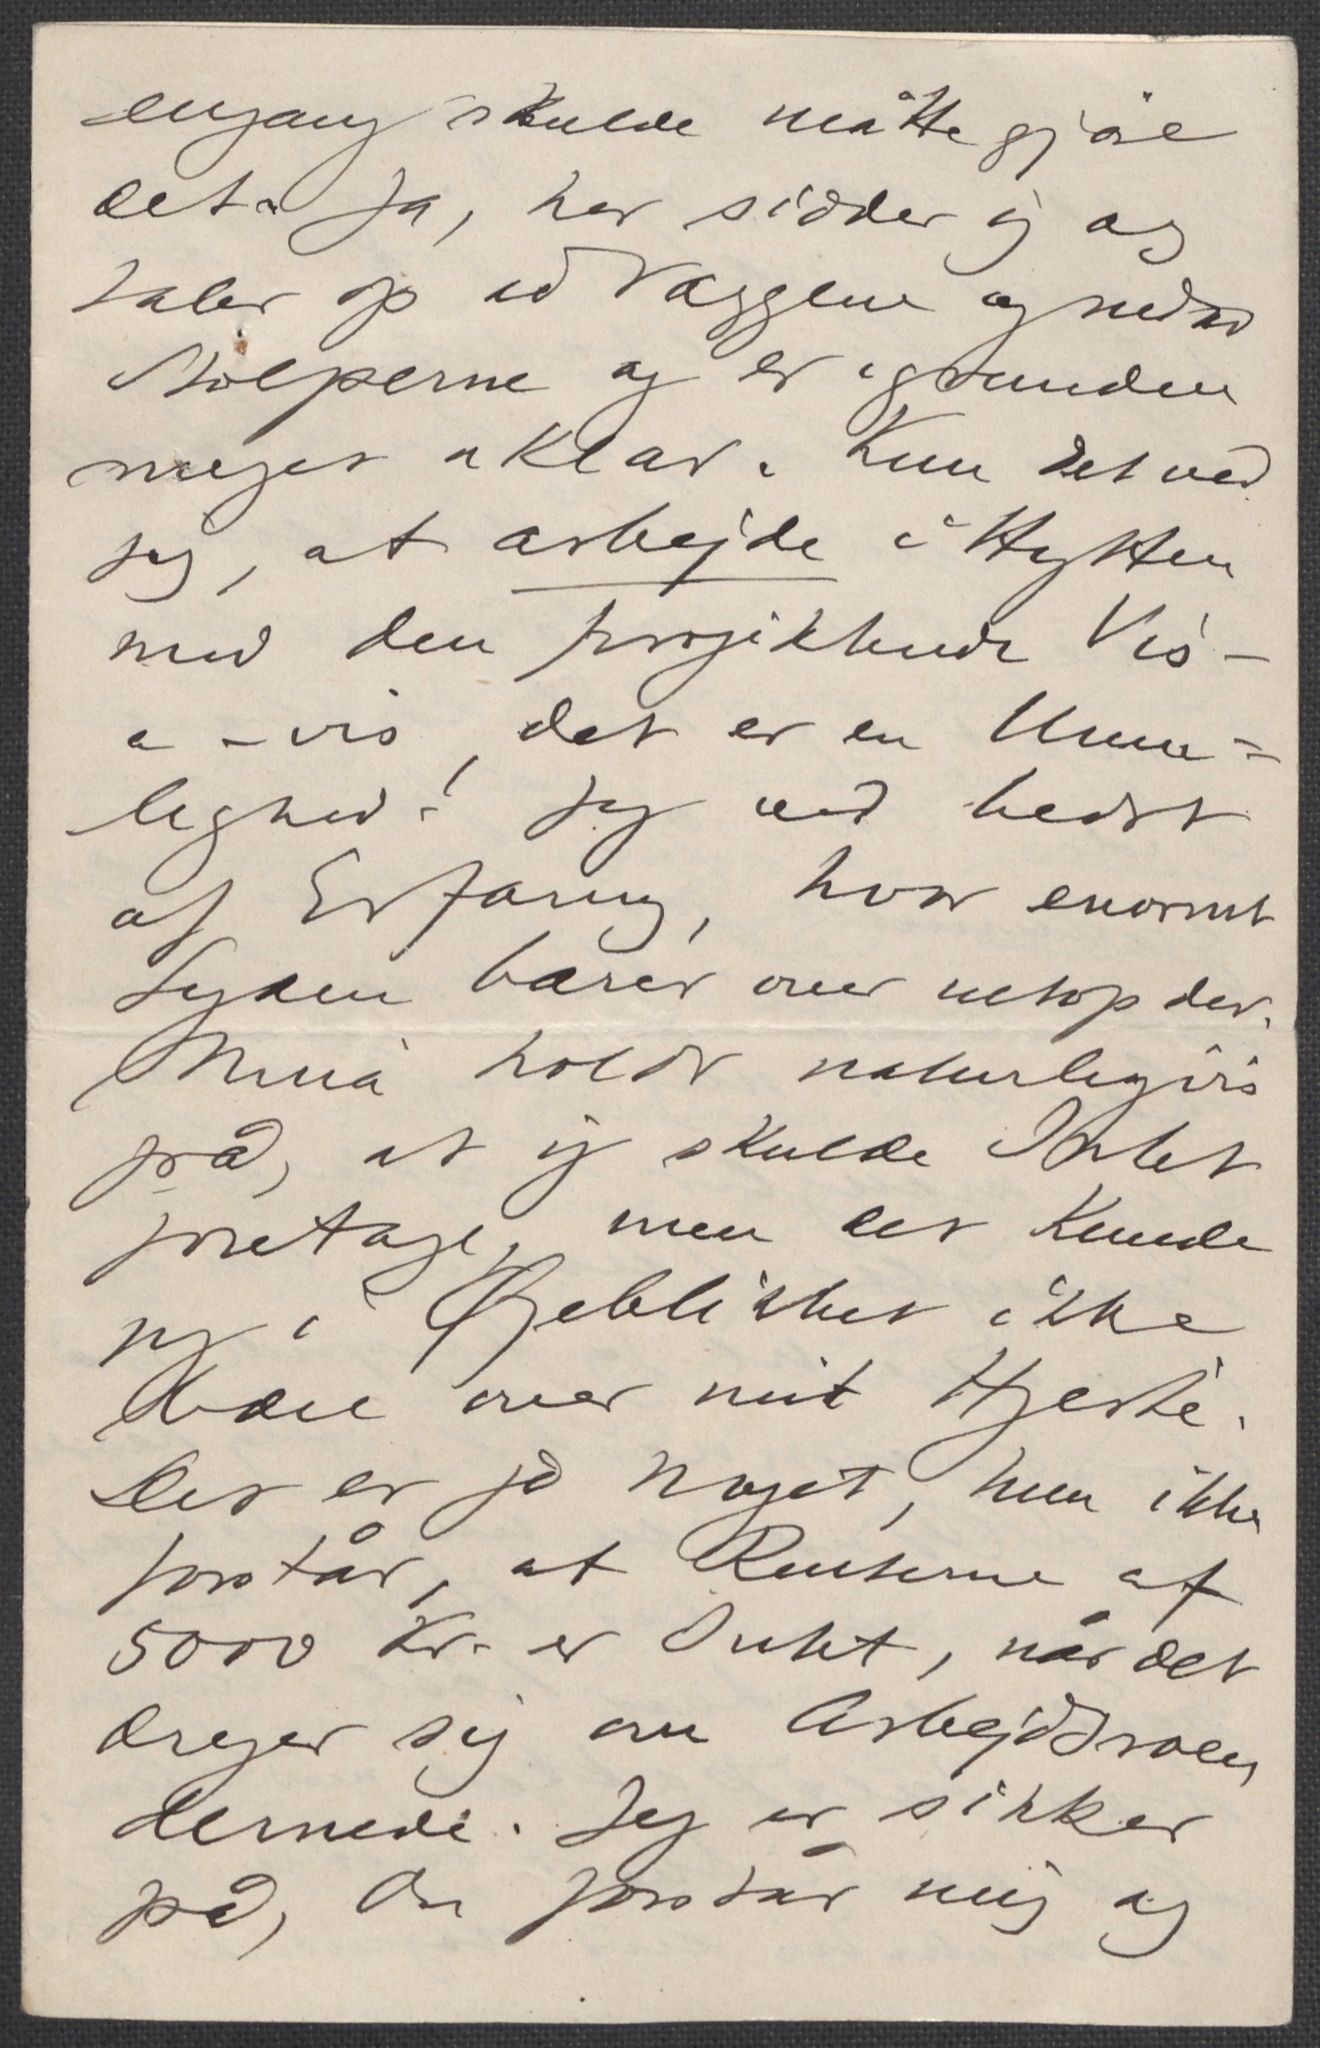 engang skulde måtte gjøre
det. Ja, her sidder jeg og
taler op ad Væggene og nedad
Stolperne og er igrunden
meget uklar. Kun det ved
jeg, at arbejde i Hytten
med den projekterede Vis-
a-vis, det er en Umu-
lighed! Jeg ved bedst
af Erfaring, hvor enormt
Lyden bærer over netop der.
Nina holdt naturligvis
på, at jeg skulde Intet
foretage, men det kunde
jeg i Øjeblikket ikke
bære over mit Hjerte.
Det er jo noget, hun ikke
forstår, at Renterne af
5000 Kr. er Intet, når det
drejer sig om Arbejdsroen
dernede. Jeg er sikker
på, Du forstår mig og